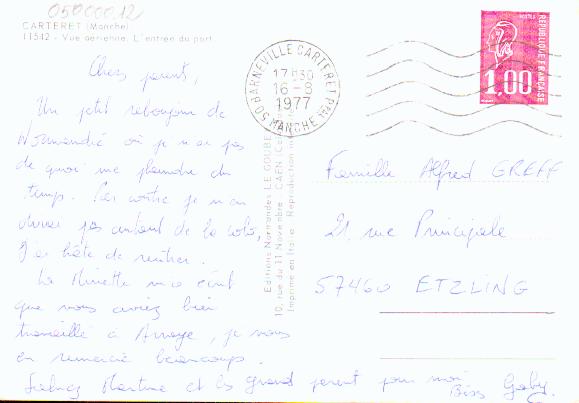 050000.12
CARTERET (Manche)
11542 - Vue aérienne. L'entrée du port
Chers parent,
Un petit rebonjour de
Normandie où je n'ai pas
de quoi me plaindre du
temps. Par contre je n'en
dirai pas autant de la colo,
J'ai hâte de rentrer.
La Minette m'a écrit
que vous aviez bien
travaillé à, je vous
en remercie beaucoup.
Martine et les grand parent pour moi
Biss Gaby
Editions Normandes LE GOUBEY
10, rue du 11 Novembre - CAEN
Imprimé en Italie Reproduction
50 BARNEVILLE CARTERET PPAL
17 H30
16-8
1977
MANCHE
POSTES
1,00
REPUBLIQUE FRANÇAISE
Famille Alfred GREFF
21, rue Principale
57460 ETZLING